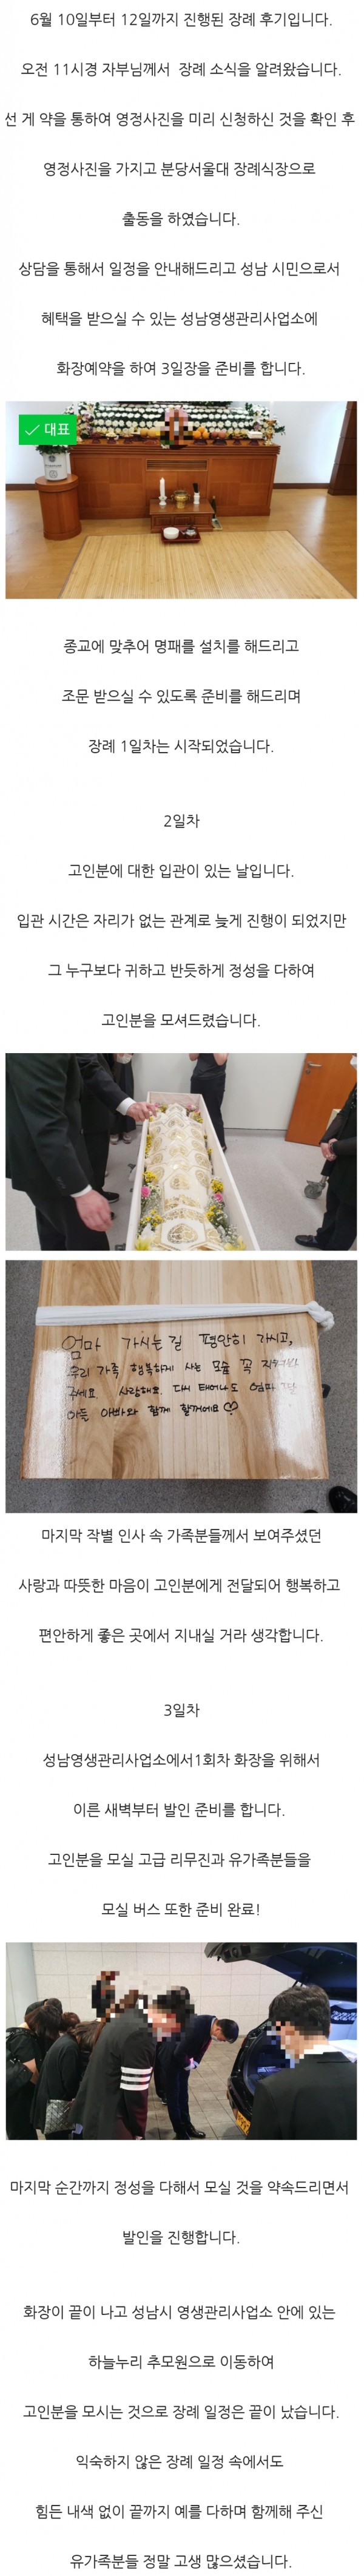 6월 10일부터 12일까지 진행된 장례 후기입니다.
오전 11시경 자부님께서 장례 소식을 알려왔습니다.
선 게 약을 통하여 영정사진을 미리 신청하신 것을 확인 후
영정사진을 가지고 분당서울대 장례식장으로
출동을 하였습니다.
상담을 통해서 일정을 안내해드리고 성남 시민으로서
혜택을 받으실 수 있는 성남영생관리사업소에
화장예약을 하여 3일장을 준비를 합니다.
대표
종교에 맞추어 명패를 설치를 해드리고
조문 받으실 수 있도록 준비를 해드리며
장례 1일차는 시작되었습니다.
2일차
고인분에 대한 입관이 있는 날입니다.
입관 시간은 자리가 없는 관계로 늦게 진행이 되었지만
그 누구보다 귀하고 반듯하게 정성을 다하여
고인분을 모셔드렸습니다.
엄마 가시는 길 평안히 가시고,
우리 가족 행복하게 사는 모습 꼭
주세요. 사랑해요. 다시 태어나도 엄마
아들 아빠와 함께 할꺼에요♡
마지막 작별 인사 속 가족분들께서 보여주셨던
사랑과 따뜻한 마음이 고인분에게 전달되어 행복하고
편안하게 좋은 곳에서 지내실 거라 생각합니다.
3일차
성남영생관리사업소에서1회차 화장을 위해서
이른 새벽부터 발인 준비를 합니다.
고인분을 모실 고급 리무진과 유가족분들을
모실 버스 또한 준비 완료!
마지막 순간까지 정성을 다해서 모실 것을 약속드리면서
발인을 진행합니다.
화장이 끝이 나고 성남시 영생관리사업소 안에 있는
하늘누리 추모원으로 이동하여
고인분을 모시는 것으로 장례 일정은 끝이 났습니다.
익숙하지 않은 장례 일정 속에서도
힘든 내색 없이 끝까지 예를 다하며 함께해 주신
유가족분들 정말 고생 많으셨습니다.